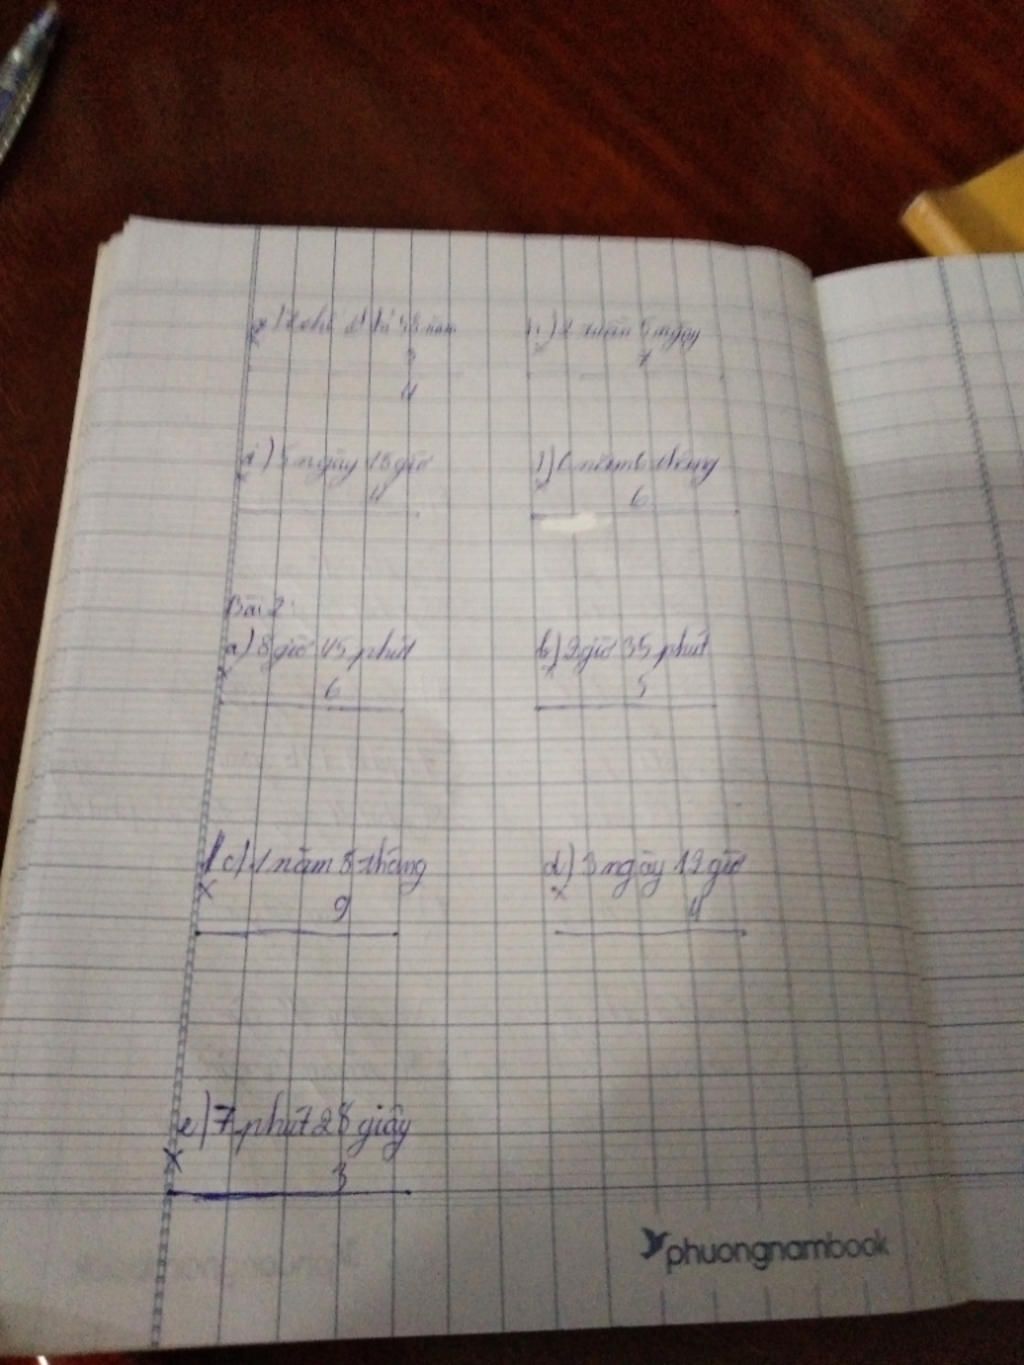 h) 2 tuần 5 ngày
7
4
5 ngày 18 giờ
4
6 tháng
6
Bài 2:
a) 8 giờ 45 phút
x 6
b) 2 giờ 35 phút
x 5
c) 1 năm 8 tháng
x 9
d) 3 ngày 12 giờ
x 4
e) 7 phút 28 giây
x 3
phuongnambook